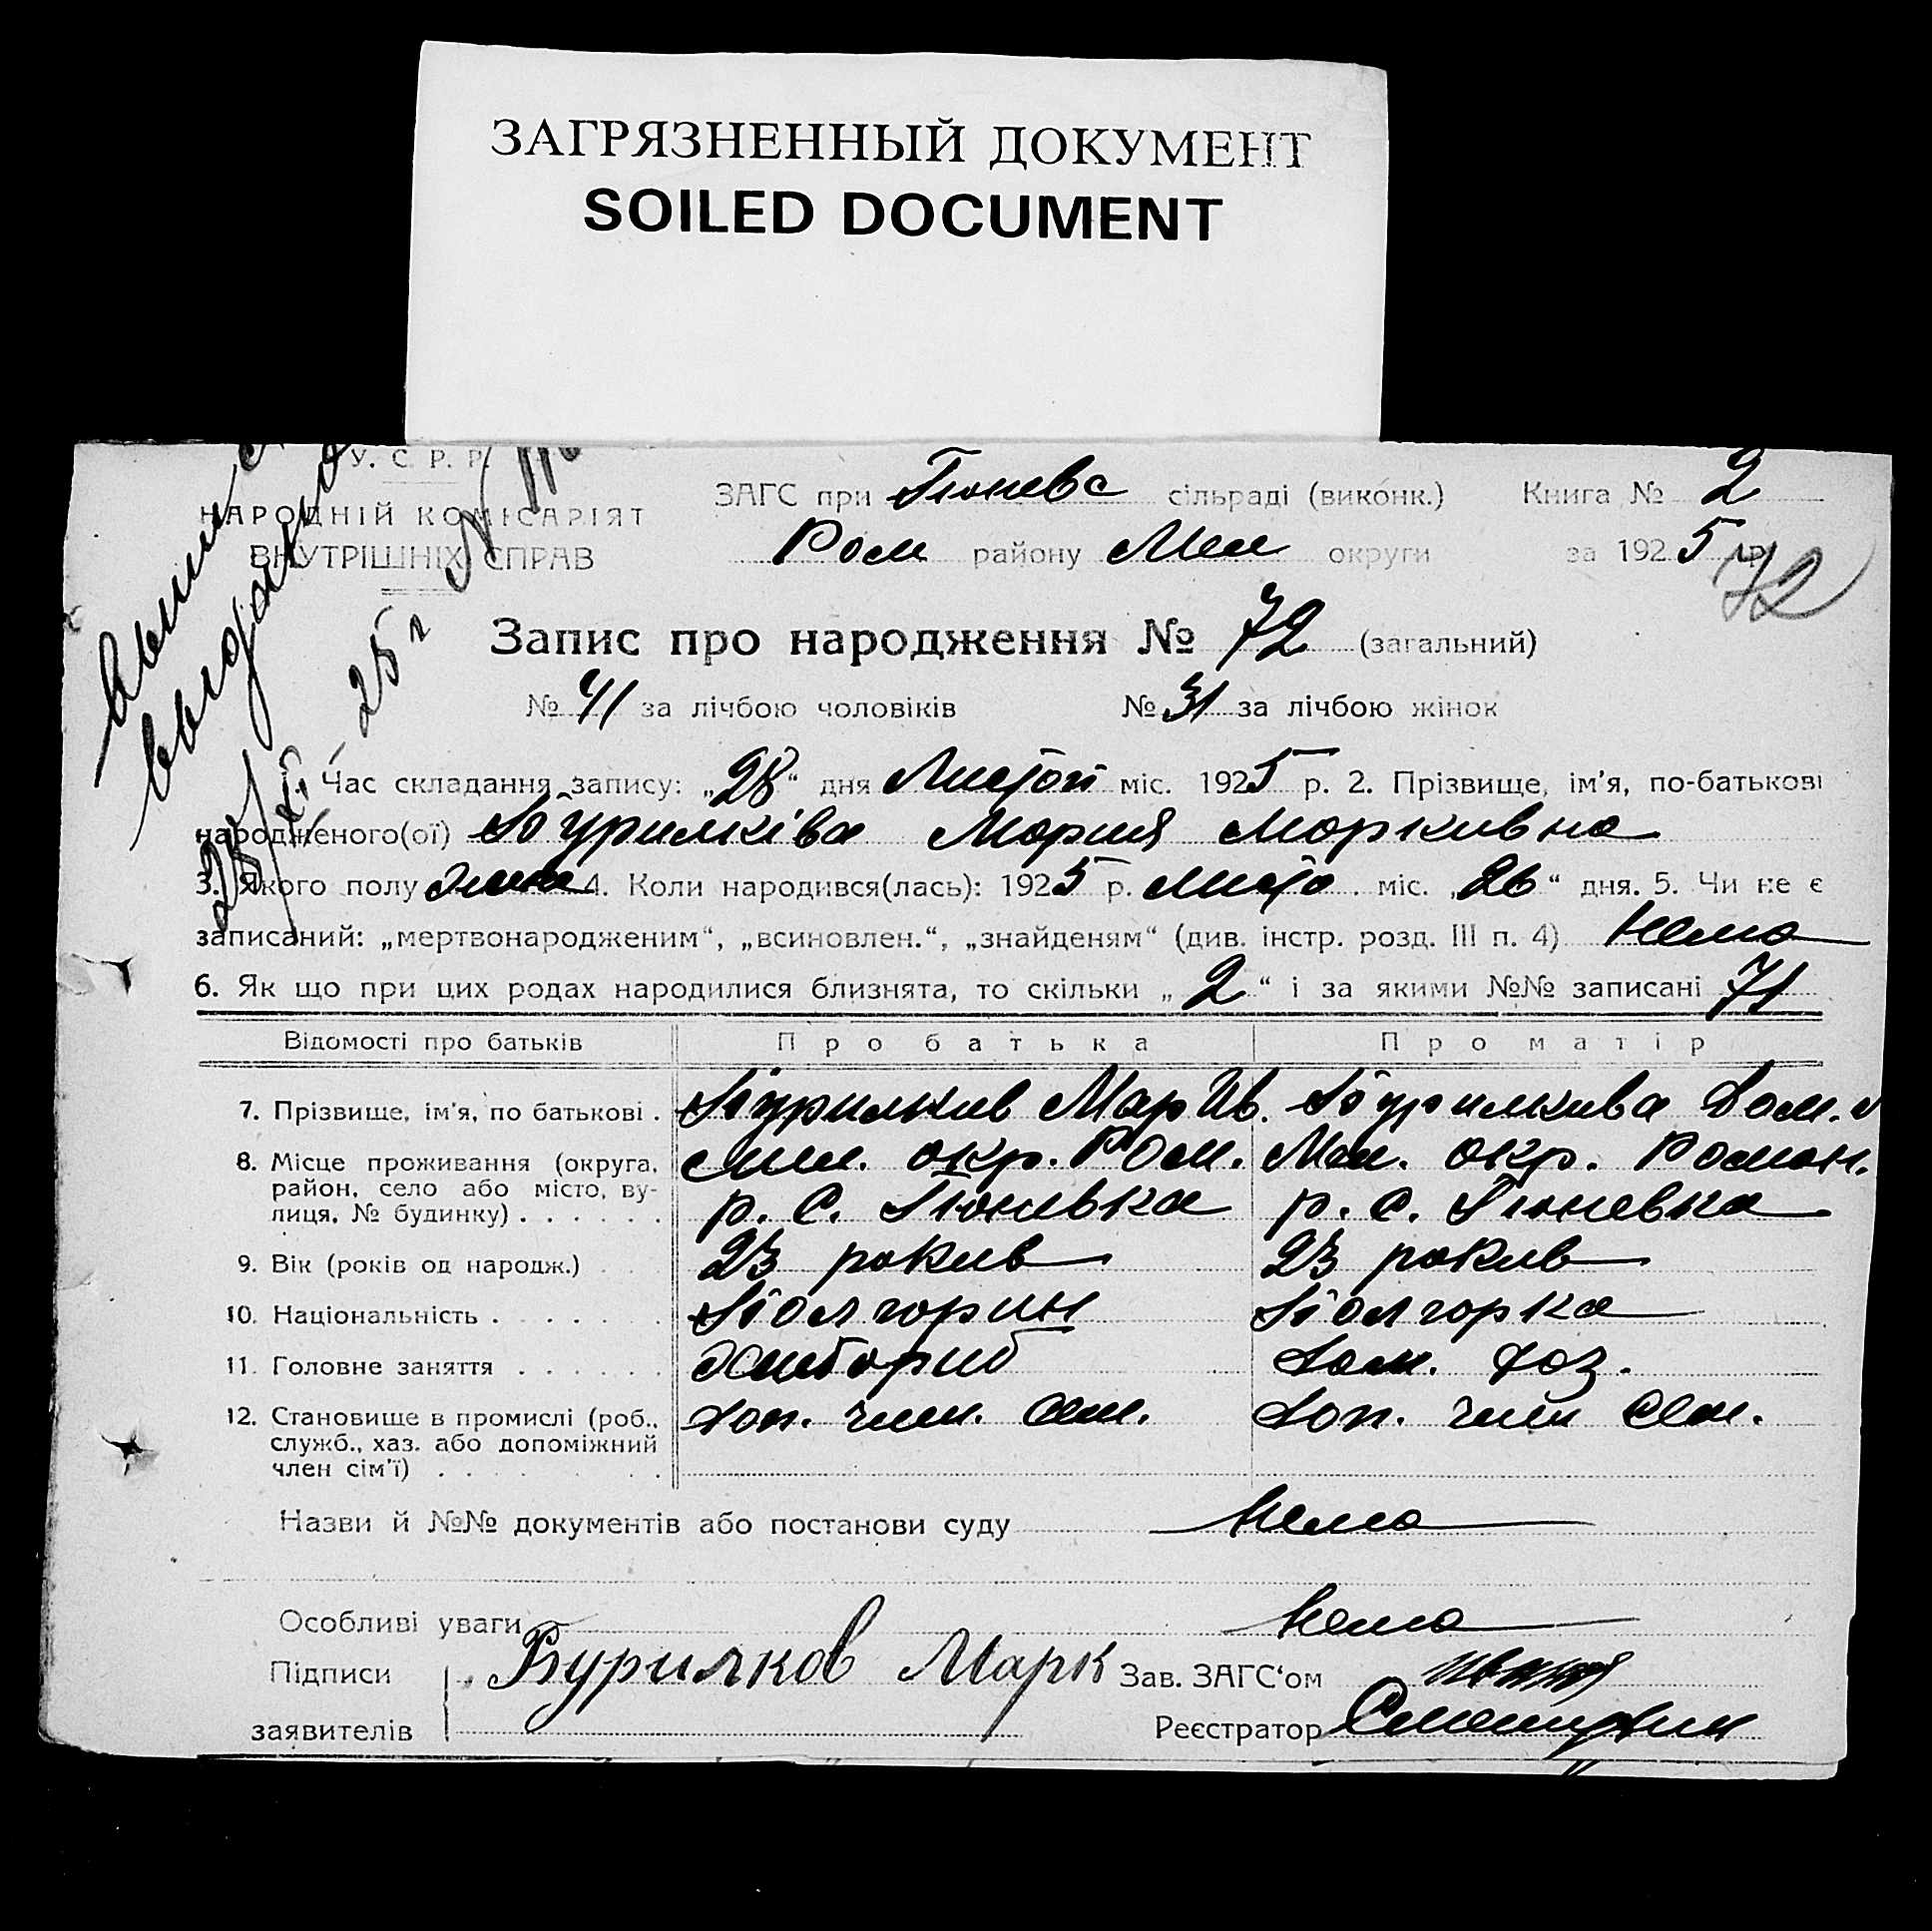 ЗАГРЯЗНЕННЫЙ ДОКУМЕНТ
SOILED DOCUMENT
У. С. Р. Р.
НАРОДНІЙ КОМІСАРІЯТ
ВНУТРІШНІХ СПРАВ
ЗАГС при Гюневс сільраді (виконк.) Книга № 2
Ром районy Мел округи за 1925 р.
72
25 г N
Запис про народження № 72 (загальний)
№ 41 за лічбою чоловіків № 31 за лічбою жінок
1. Час складання запису: „28“ дня Листоп міс. 1925 р. 2. Прізвище, ім'я, по-батькові
народженого(ої) Бурилківа Мария Маркивна
3. Якого полу 4. Коли народився(лась): 1925 р. Листо міс. „26“ дня. 5. Чи не є
записаний: „мертвонародженим“, „всиновлен.“, „знайденям“ (див. інстр. розд. III п. 4) Нема
6. Як що при цих родах народилися близнята, то скільки „2“ і за якими №№ записані 71
Відомості про батьків Про батька Про матір
7. Прізвище, ім'я, по батькові . Бурилкив Мар Ив. Бурилкива Дом.
8. Місце проживання (округа, Мел. окр. Ром. Мел. окр. Роман.
район, село або місто, ву- р. С. Гюневка р. С. Гюневка
лиця, № будинку) . . . . . .
9. Вік (років од народж.) 23 рокив 23 рокив
10. Національність . . . . . . Болгорин Болгорка
11. Головне заняття . . . . . . Хлибориб Дом. хоз.
12. Становище в промислі (роб., Доп. член. сем. Доп. член сем.
служб., хаз. або допоміжний
член сім'ї) . . . . . .
Назви й №№ документів або постанови суду Нема
Особливі уваги Нема
Підписи Бурилков Марк Зав. ЗАГС'ом
заявителів Реєстратор